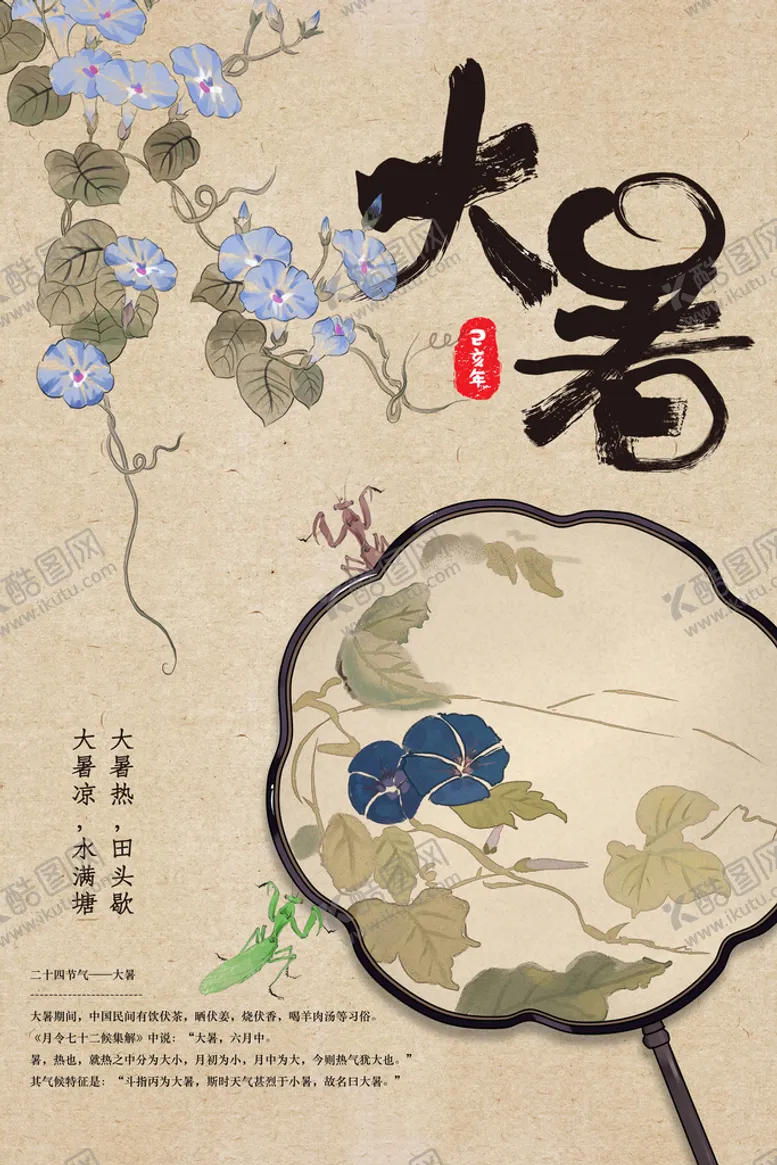 大暑
己亥年
大暑热，田头歇
大暑凉，水满塘
二十四节气——大暑
大暑期间，中国民间有饮伏茶，晒伏姜，烧伏香，喝羊肉汤等习俗。
《月令七十二候集解》中说：“大暑，六月中。
暑，热也，就热之中分为大小，月初为小，月中为大，今则热气犹大也。”
其气候特征是：“斗指丙为大暑，斯时天气甚烈于小暑，故名曰大暑。”
酷图网
www.ikutu.com